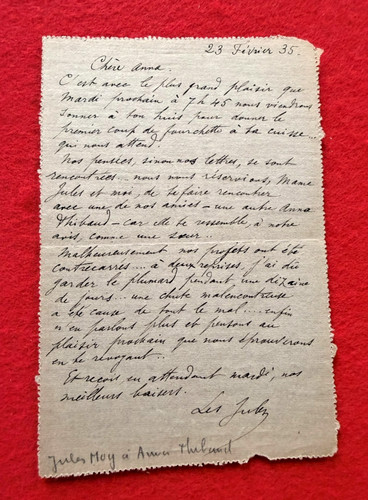 23 Février 35.
Chère Anna.
C'est avec le plus grand plaisir que
Mardi prochain à 7h 45 nous viendrons
sonner à ton huis pour donner le
premier coup de fourchette à ta cuisse...
qui nous attend.
Nos pensées, sinon nos lettres, se sont
rencontrées... nous nous réservions, Mame
Jules et moi, de te faire rencontrer
avec une de nos amies - une autre Anna
Thibaud - car elle te ressemble, à notre
avis comme une sœur..
Malheureusement nos projets ont été
contrecarrés.... à deux reprises j'ai dû
garder le plumard pendant une dizaine
de jours... une chute malencontreuse
a été cause de tout le mal.... enfin
n'en parlons plus et pensons au
plaisir prochain que nous éprouverons
en te revoyant..
Et reçois en attendant mardi, nos
meilleurs baisers.
Les Jules
Jules Moy à Anna Thibaud